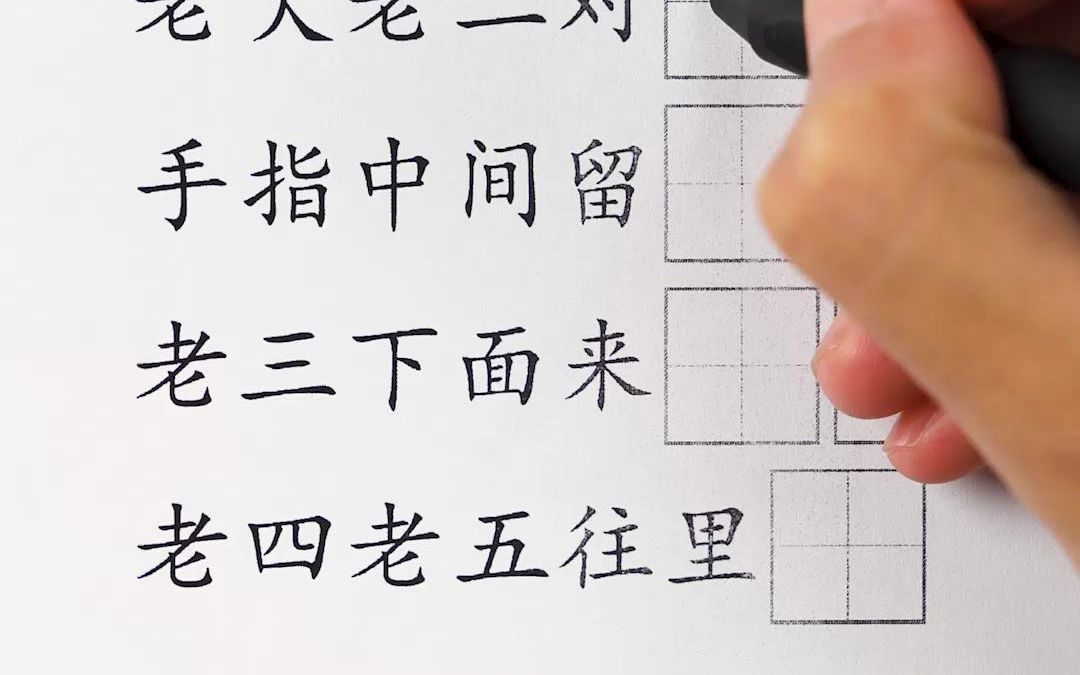 老大老二对
手指中间留
老三下面来
老四老五往里